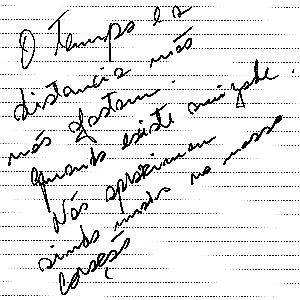 O Tempo e a
distancia não
nós afastam.
quando existe amizade.
Nós aproximam
ainda mais no nosso
Coração